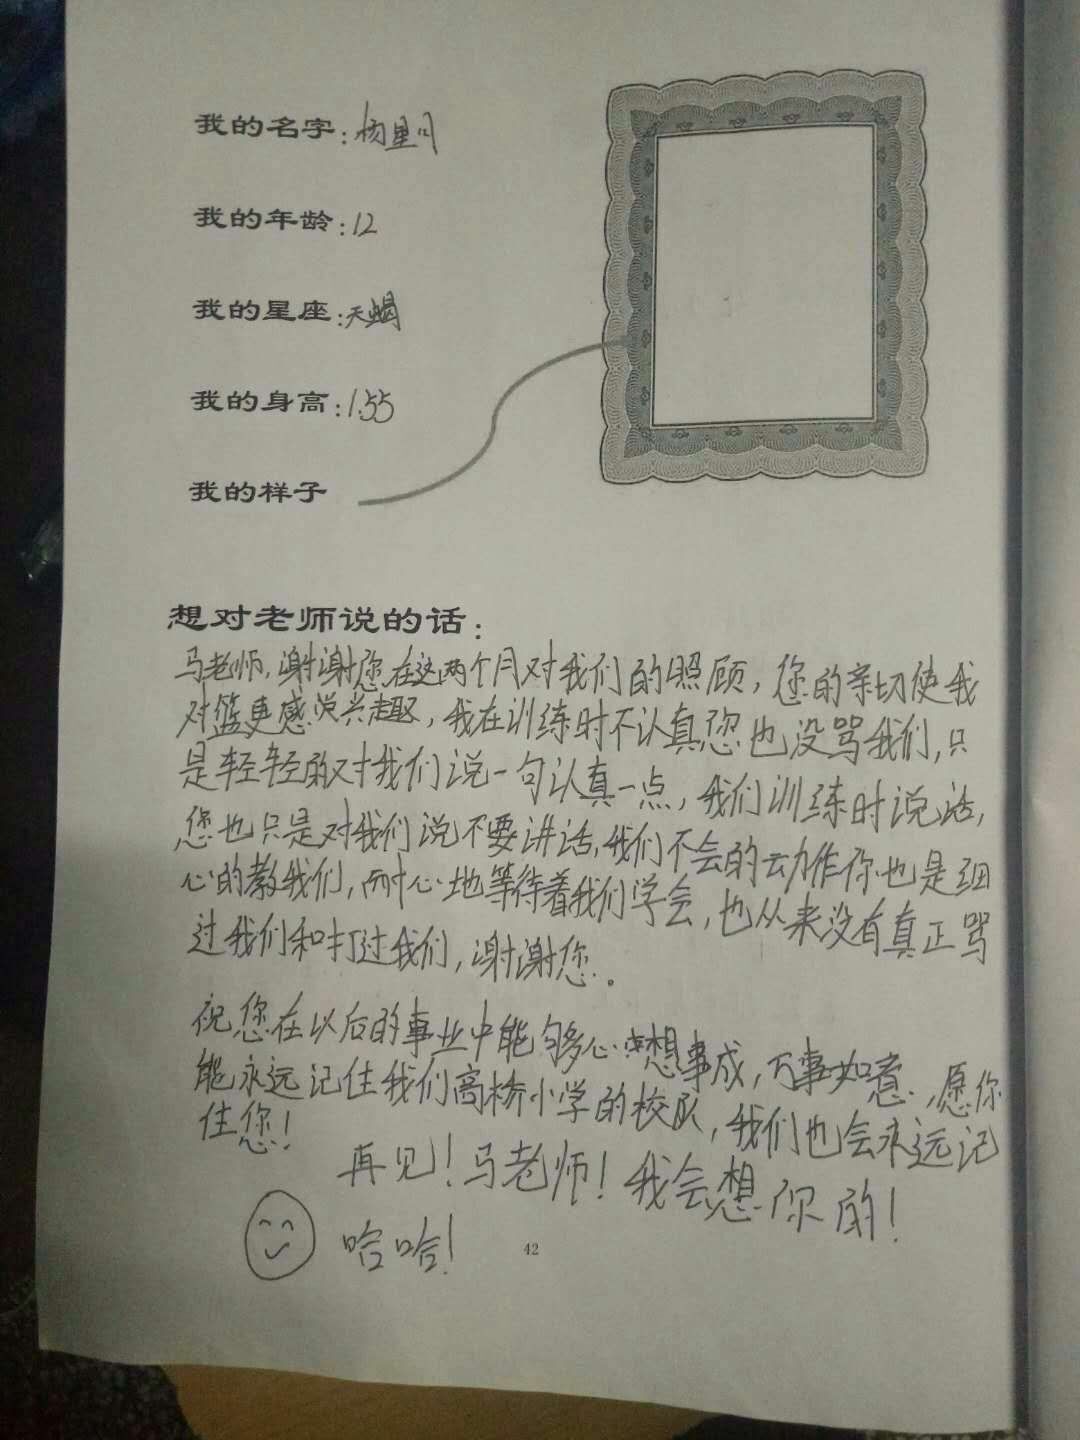 我的名字:杨里
我的年龄:12
我的星座:天蝎
我的身高:1.55
我的样子
想对老师说的话:
马老师,谢谢您在这两个月对我们的照顾,您的亲切使我
对篮更感觉兴趣,我在训练时不认真您也没骂我们,只
是轻轻的对我们说一句认真一点,我们训练时说话,
您也只是对我们说不要讲话,我们不会的动作你也是细
心的教我们,耐心地等待着我们学会,也从来没有真正骂
过我们和打过我们,谢谢您。
祝您在以后的事业中能够心想事成,万事如意,愿你
能永远记住我们高桥小学的校队,我们也会永远记
住您!
再见!马老师!我会想你的!
哈哈!
42